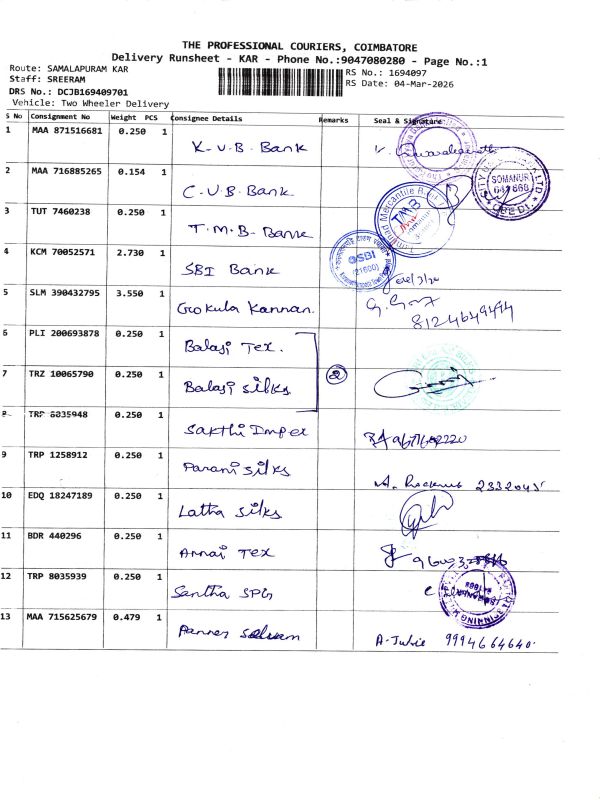 THE PROFESSIONAL COURIERS, COIMBATORE
Delivery Runsheet - KAR - Phone No.:9047080280 - Page No.:1
Route: SAMALAPURAM KAR
RS No.: 1694097
Staff: SREERAM
RS Date: 04-Mar-2026
DRS No.: DCJB169409701
Vehicle: Two Wheeler Delivery
S No Consignment No Weight PCS Consignee Details Remarks Seal & Signature
1 MAA 871516681 0.250 1 K.V.B. Bank
2 MAA 716885265 0.154 1 C.U.B. Bank SOMANUR
3 TUT 7460238 0.250 1 T.M.B. Bank TMB
4 KCM 70052571 2.730 1 SBI Bank SBI
5 SLM 390432795 3.550 1 Gokula Kannan. 8124649494
6 PLI 200693878 0.250 1 Balaji Tex.
7 TRZ 10065790 0.250 1 Balaji Silks 2
8 TRP 8035948 0.250 1 Sakthi Impex
9 TRP 1258912 0.250 1 Parani Silks 2332045
10 EDQ 18247189 0.250 1 Latha Silks
11 BDR 440296 0.250 1 Annai Tex
12 TRP 8035939 0.250 1 Santha SPG
13 MAA 715625679 0.479 1 Panner Selvam A. Julie 9994664640